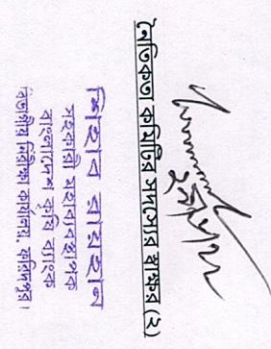 নৈতিকতা কমিটির সদস্যের স্বাক্ষর (২)
সহকারী মহাব্যবস্থাপক
বাংলাদেশ কৃষি ব্যাংক
বিভাগীয় নিরীক্ষা কার্যালয়, ফরিদপুর।